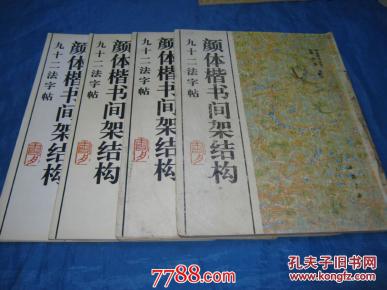 颜体楷书间架结构
九十二法字帖
颜体楷书间架结构
九十二法字帖
颜体楷书间架结构
九十二法字帖
颜体楷书间架结构
九十二法字帖
7788.com
孔夫子旧书网